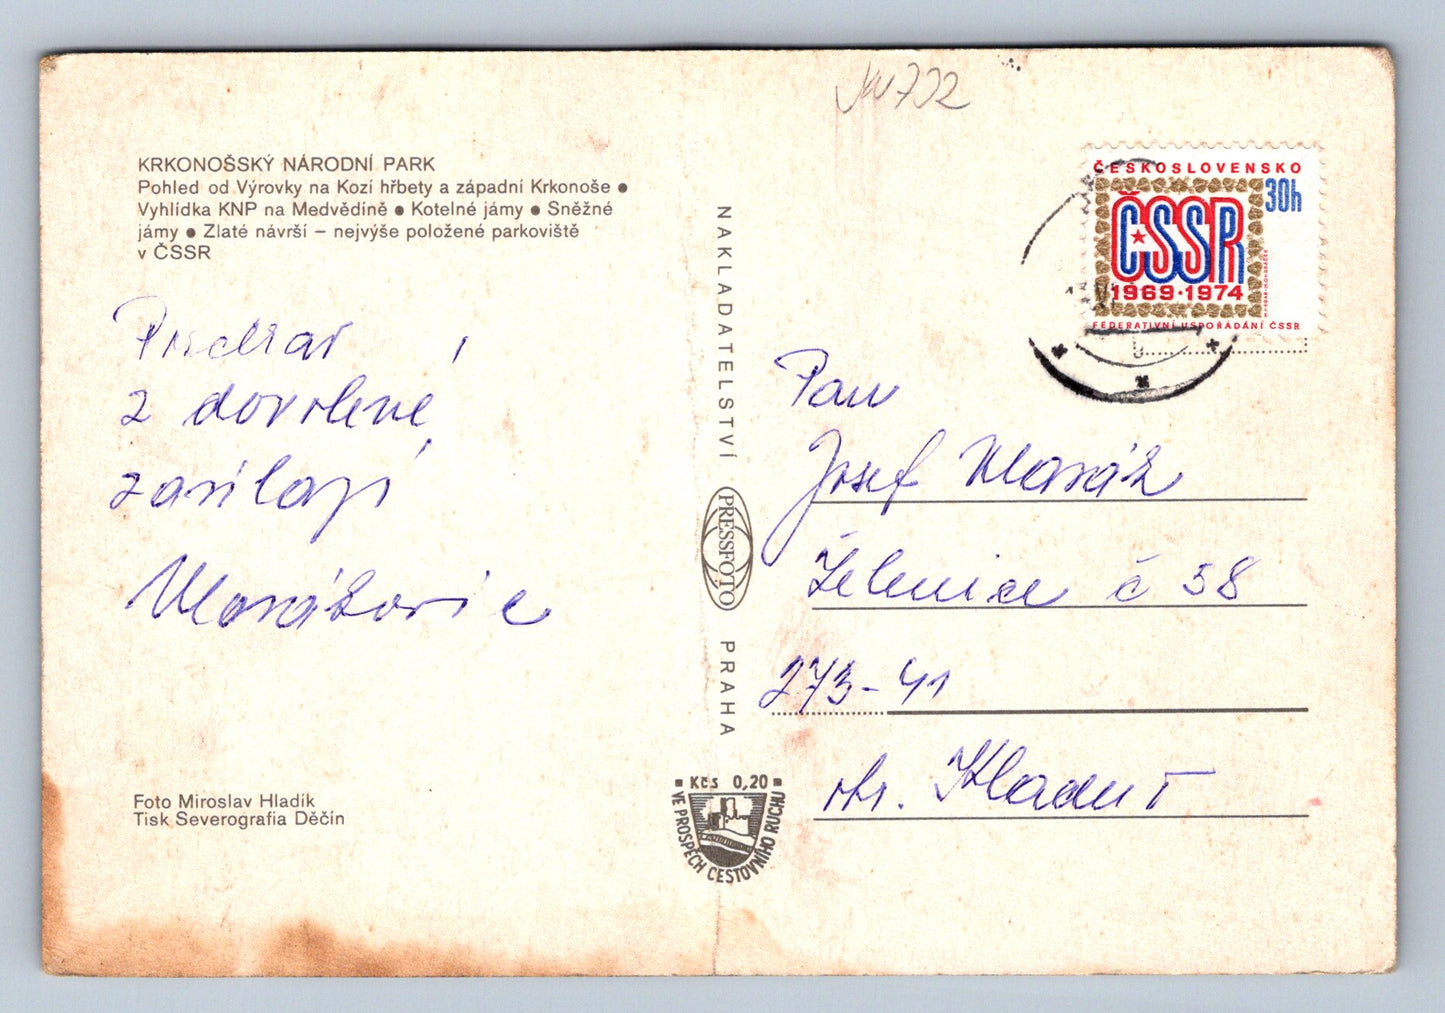 KRKONOŠSKÝ NÁRODNÍ PARK
Pohled od Výrovky na Kozí hřbety a západní Krkonoše ●
Vyhlídka KNP na Medvědíně ● Kotelné jámy ● Sněžné
jámy ● Zlaté návrší – nejvýše položené parkoviště
v ČSSR
Pozdrav
z dovolené
zasílají
Foto Miroslav Hladík
Tisk Severografia Děčín
NAKLADATELSTVÍ
PRESSFOTO
PRAHA
Kčs 0,20
VE PROSPĚCH CESTOVNÍHO RUCHU
732
ČESKOSLOVENSKO
30h
ČSSR
1969·1974
FEDERATIVNÍ USPOŘÁDÁNÍ ČSSR
Pan
Josef
Želenice č 58
273-41
okr. Kladno